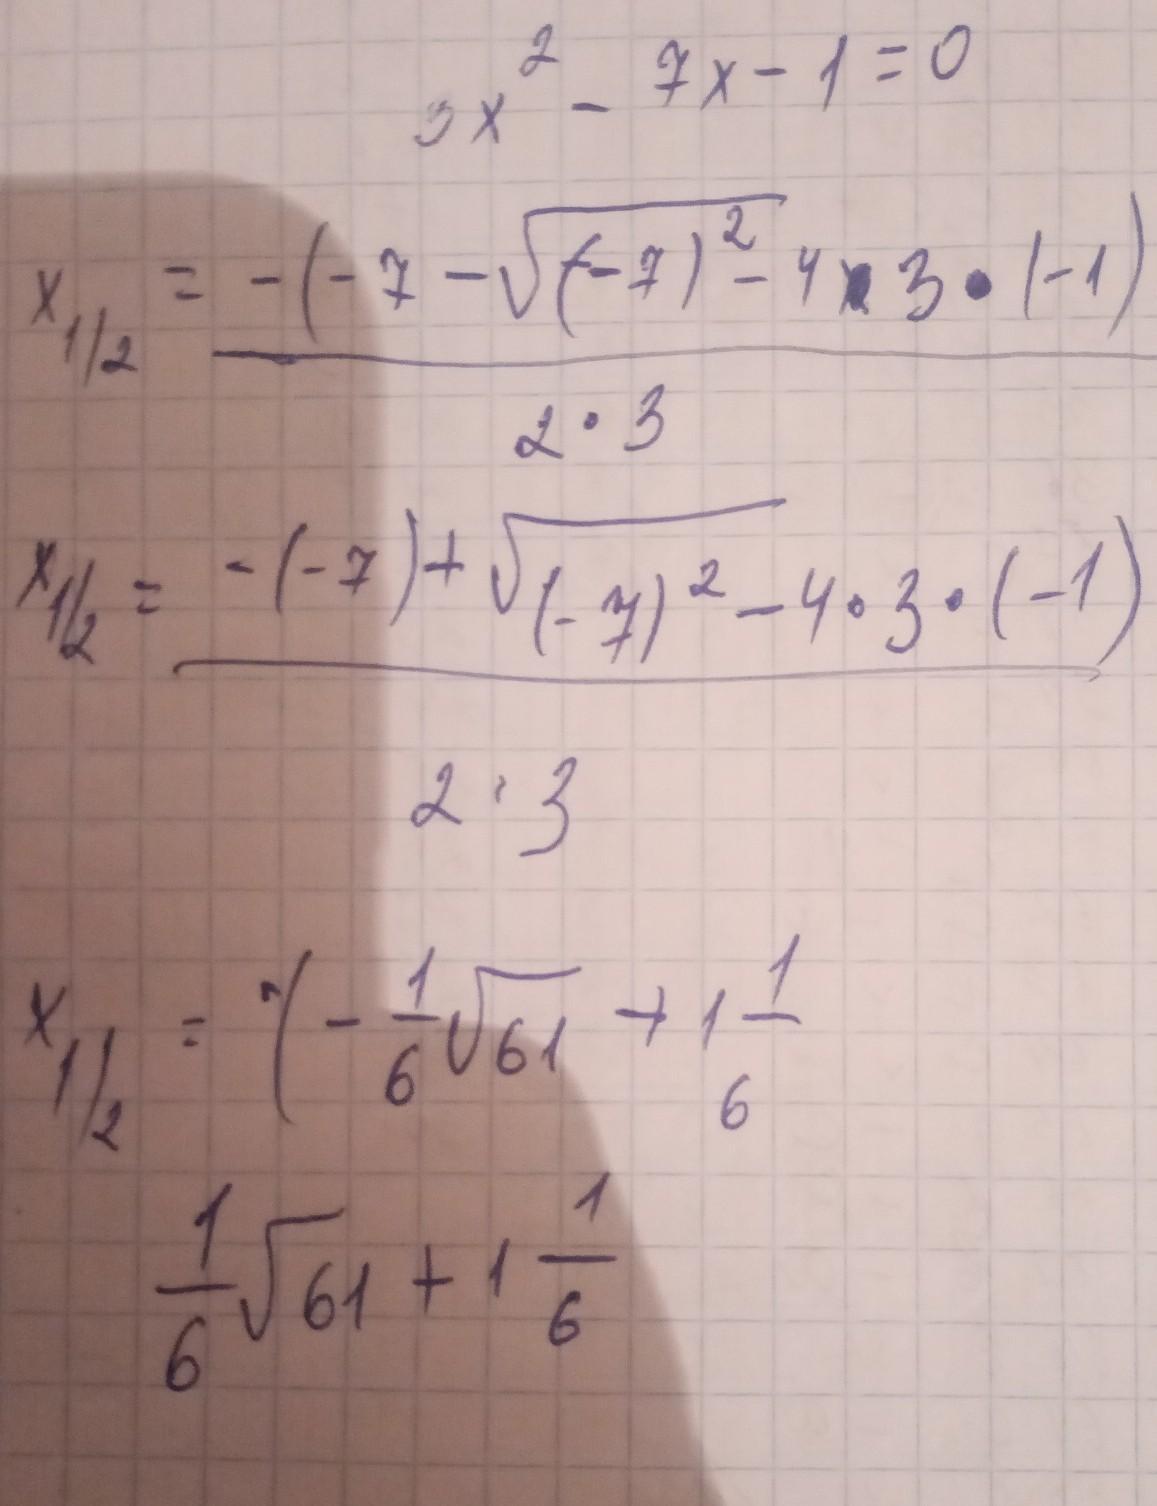 3x² - 7x - 1 = 0
x₁/₂ = -(-7 - √(-7)² - 4 · 3 · (-1)
2 · 3
x₁/₂ = -(-7) + √(-7)² - 4 · 3 · (-1)
2 · 3
x₁/₂ = (- 1/6 √61 + 1 1/6
1/6 √61 + 1 1/6